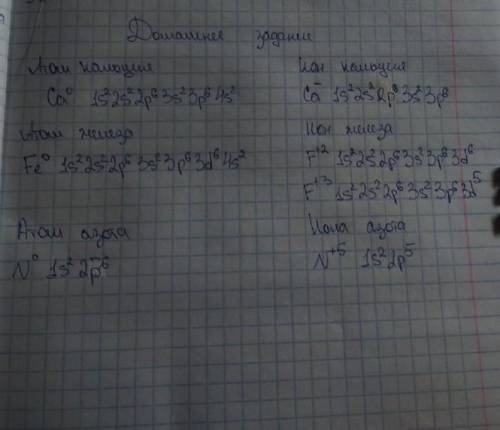 Домашнее задание
Атом кальция
Ca⁰ 1s²2s²2p⁶3s²3p⁶4s²
Ион кальция
Ca⁻ 1s²2s²2p⁶3s²3p⁶
Атом железа
Fe⁰ 1s²2s²2p⁶3s²3p⁶3d⁶4s²
Ион железа
F⁺² 1s²2s²2p⁶3s²3p⁶3d⁶
F⁺³ 1s²2s²2p⁶3s²3p⁶3d⁵
Атом азота
N⁰ 1s² 2p⁶
Иона азота
N⁺⁵ 1s²2p⁵